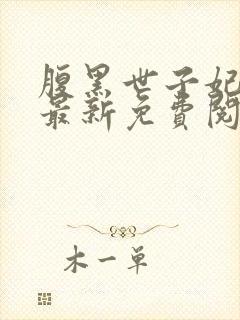 腹黑世子妃
最新免費閱
木一单